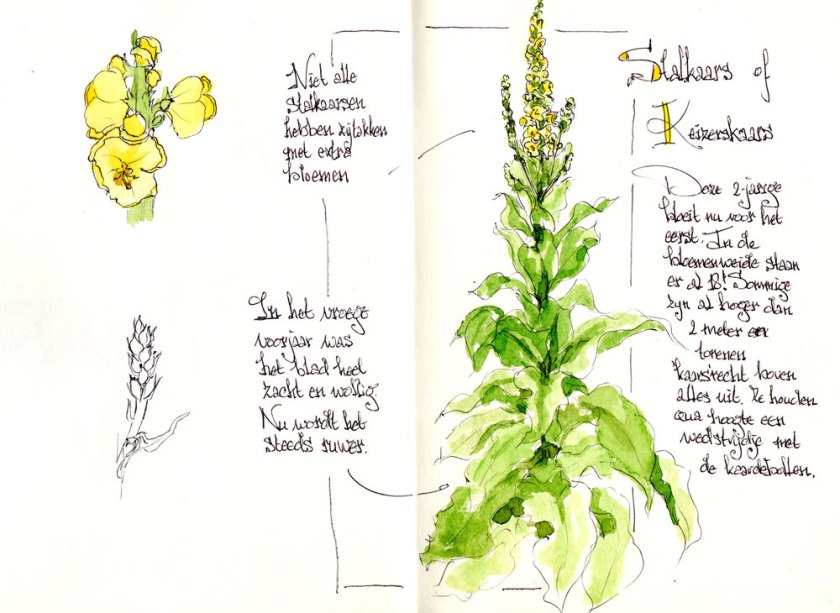 Niet alle
stalkaarsen
hebben zijtakken
met extra
bloemen
In het vroege
voorjaar was
het blad heel
zacht en wollig
Nu wordt het
steeds ruwer.
Stalkaars of
Keizerskaars
Deze 2-jarige
bloeit nu voor het
eerst. In de
bloemenweide staan
er al Sommige
zijn al hoger dan
2 meter en
torenen
kaarsrecht boven
alles uit. Ze houden
qua hoogte een
wedstrijdje met
de kaardebollen.